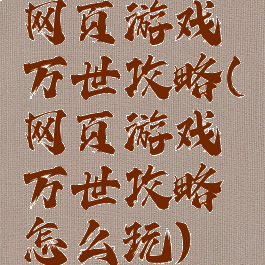 网页游戏
万世攻略(
网页游戏
万世攻略
怎么玩)